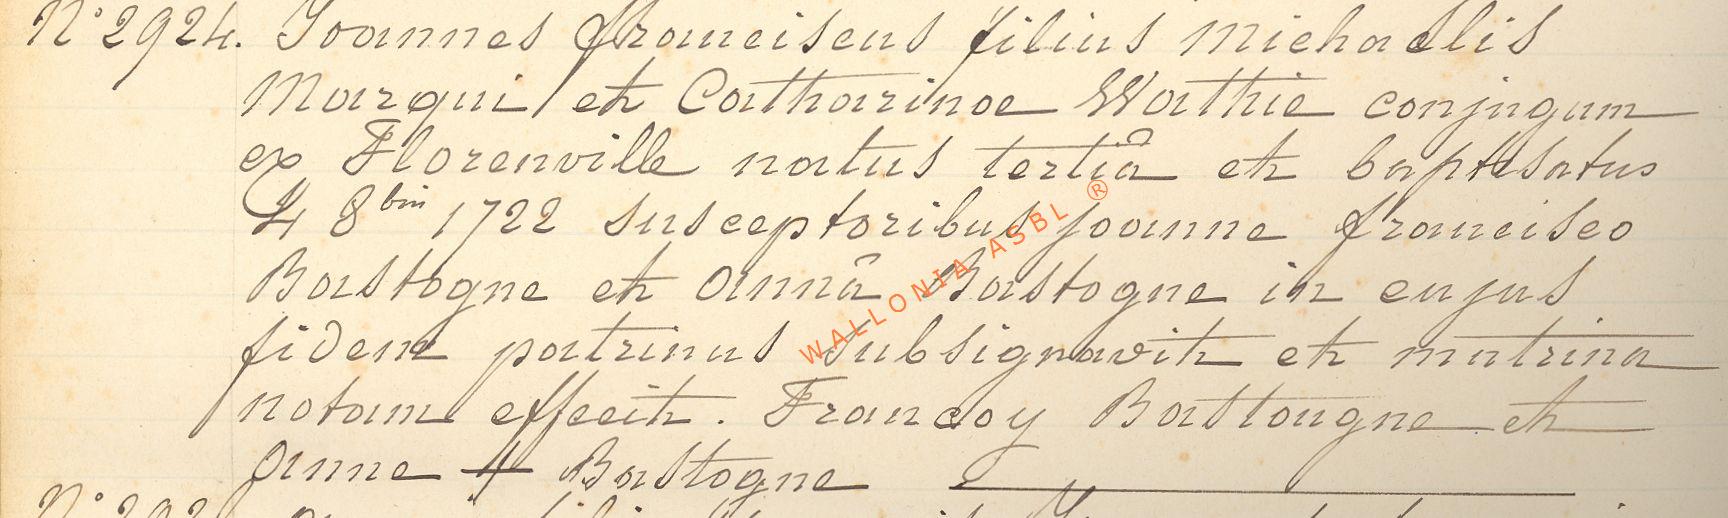 N° 2924. Joannes franciscus filius Michaelis
Marqui et Catharinae Wathie conjugum
ex Florenville natus tertiâ et baptisatus
4 8bris 1722 susceptoribus joanne francisco
Bastogne et annâ Bastogne in cujus
fidem patrinus subsignavit et matrina
notam effecit. Francoy Bastougne et
anne + Bastogne
WALLONIA ASBL ®